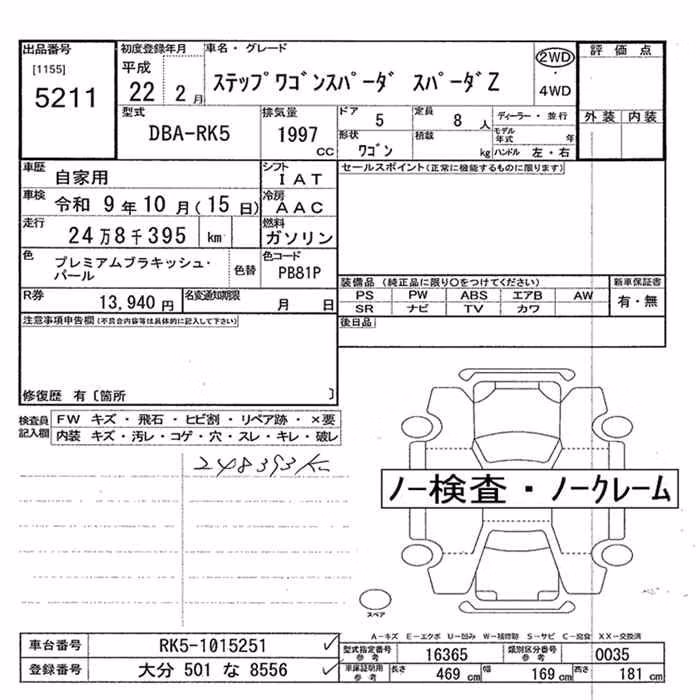 出品番号
[1155]
5211
初度登録年月
平成
22 2月
車名・グレード
ステップワゴンスパーダ スパーダZ
2WD
・
4WD
評価点
外装 内装
型式
DBA-RK5
排気量
1997
cc
ドア
5
定員
8人
ディーラー・並行
形状
ワゴン
積載
kg
モデル年式
年
ハンドル 左・右
車歴
自家用
シフト
IAT
車検
令和 9年10月(15日)
冷房
AAC
走行
24万8千395 km
燃料
ガソリン
色
プレミアムブラキッシュ・
パール
色替
色コード
PB81P
R券
13,940円
名変通知期限
月 日
セールスポイント(正常に機能するものに限ります)
装備品(純正品に限り〇をつけてください)
PS PW ABS エアB AW
SR ナビ TV カワ
新車保証書
有・無
後日品
注意事項申告欄(不良合内容等は具体的に記入して下さい)
修復歴 有〔箇所 〕
検査員
記入欄
FW キズ・飛石・ヒビ割・リペア跡・×要
内装 キズ・汚レ・コゲ・穴・スレ・キレ・破レ
248393K
ノー検査・ノークレーム
スペア
A-キズ E-エクボ U-凹み W-補修跡 S-サビ C-腐食 XX-交換済
車台番号
RK5-1015251
登録番号
大分 501 な 8556
型式指定番号
参考
16365
類別区分番号
参考
0035
車庫証明用
参考
長さ
469cm
幅
169cm
高さ
181cm